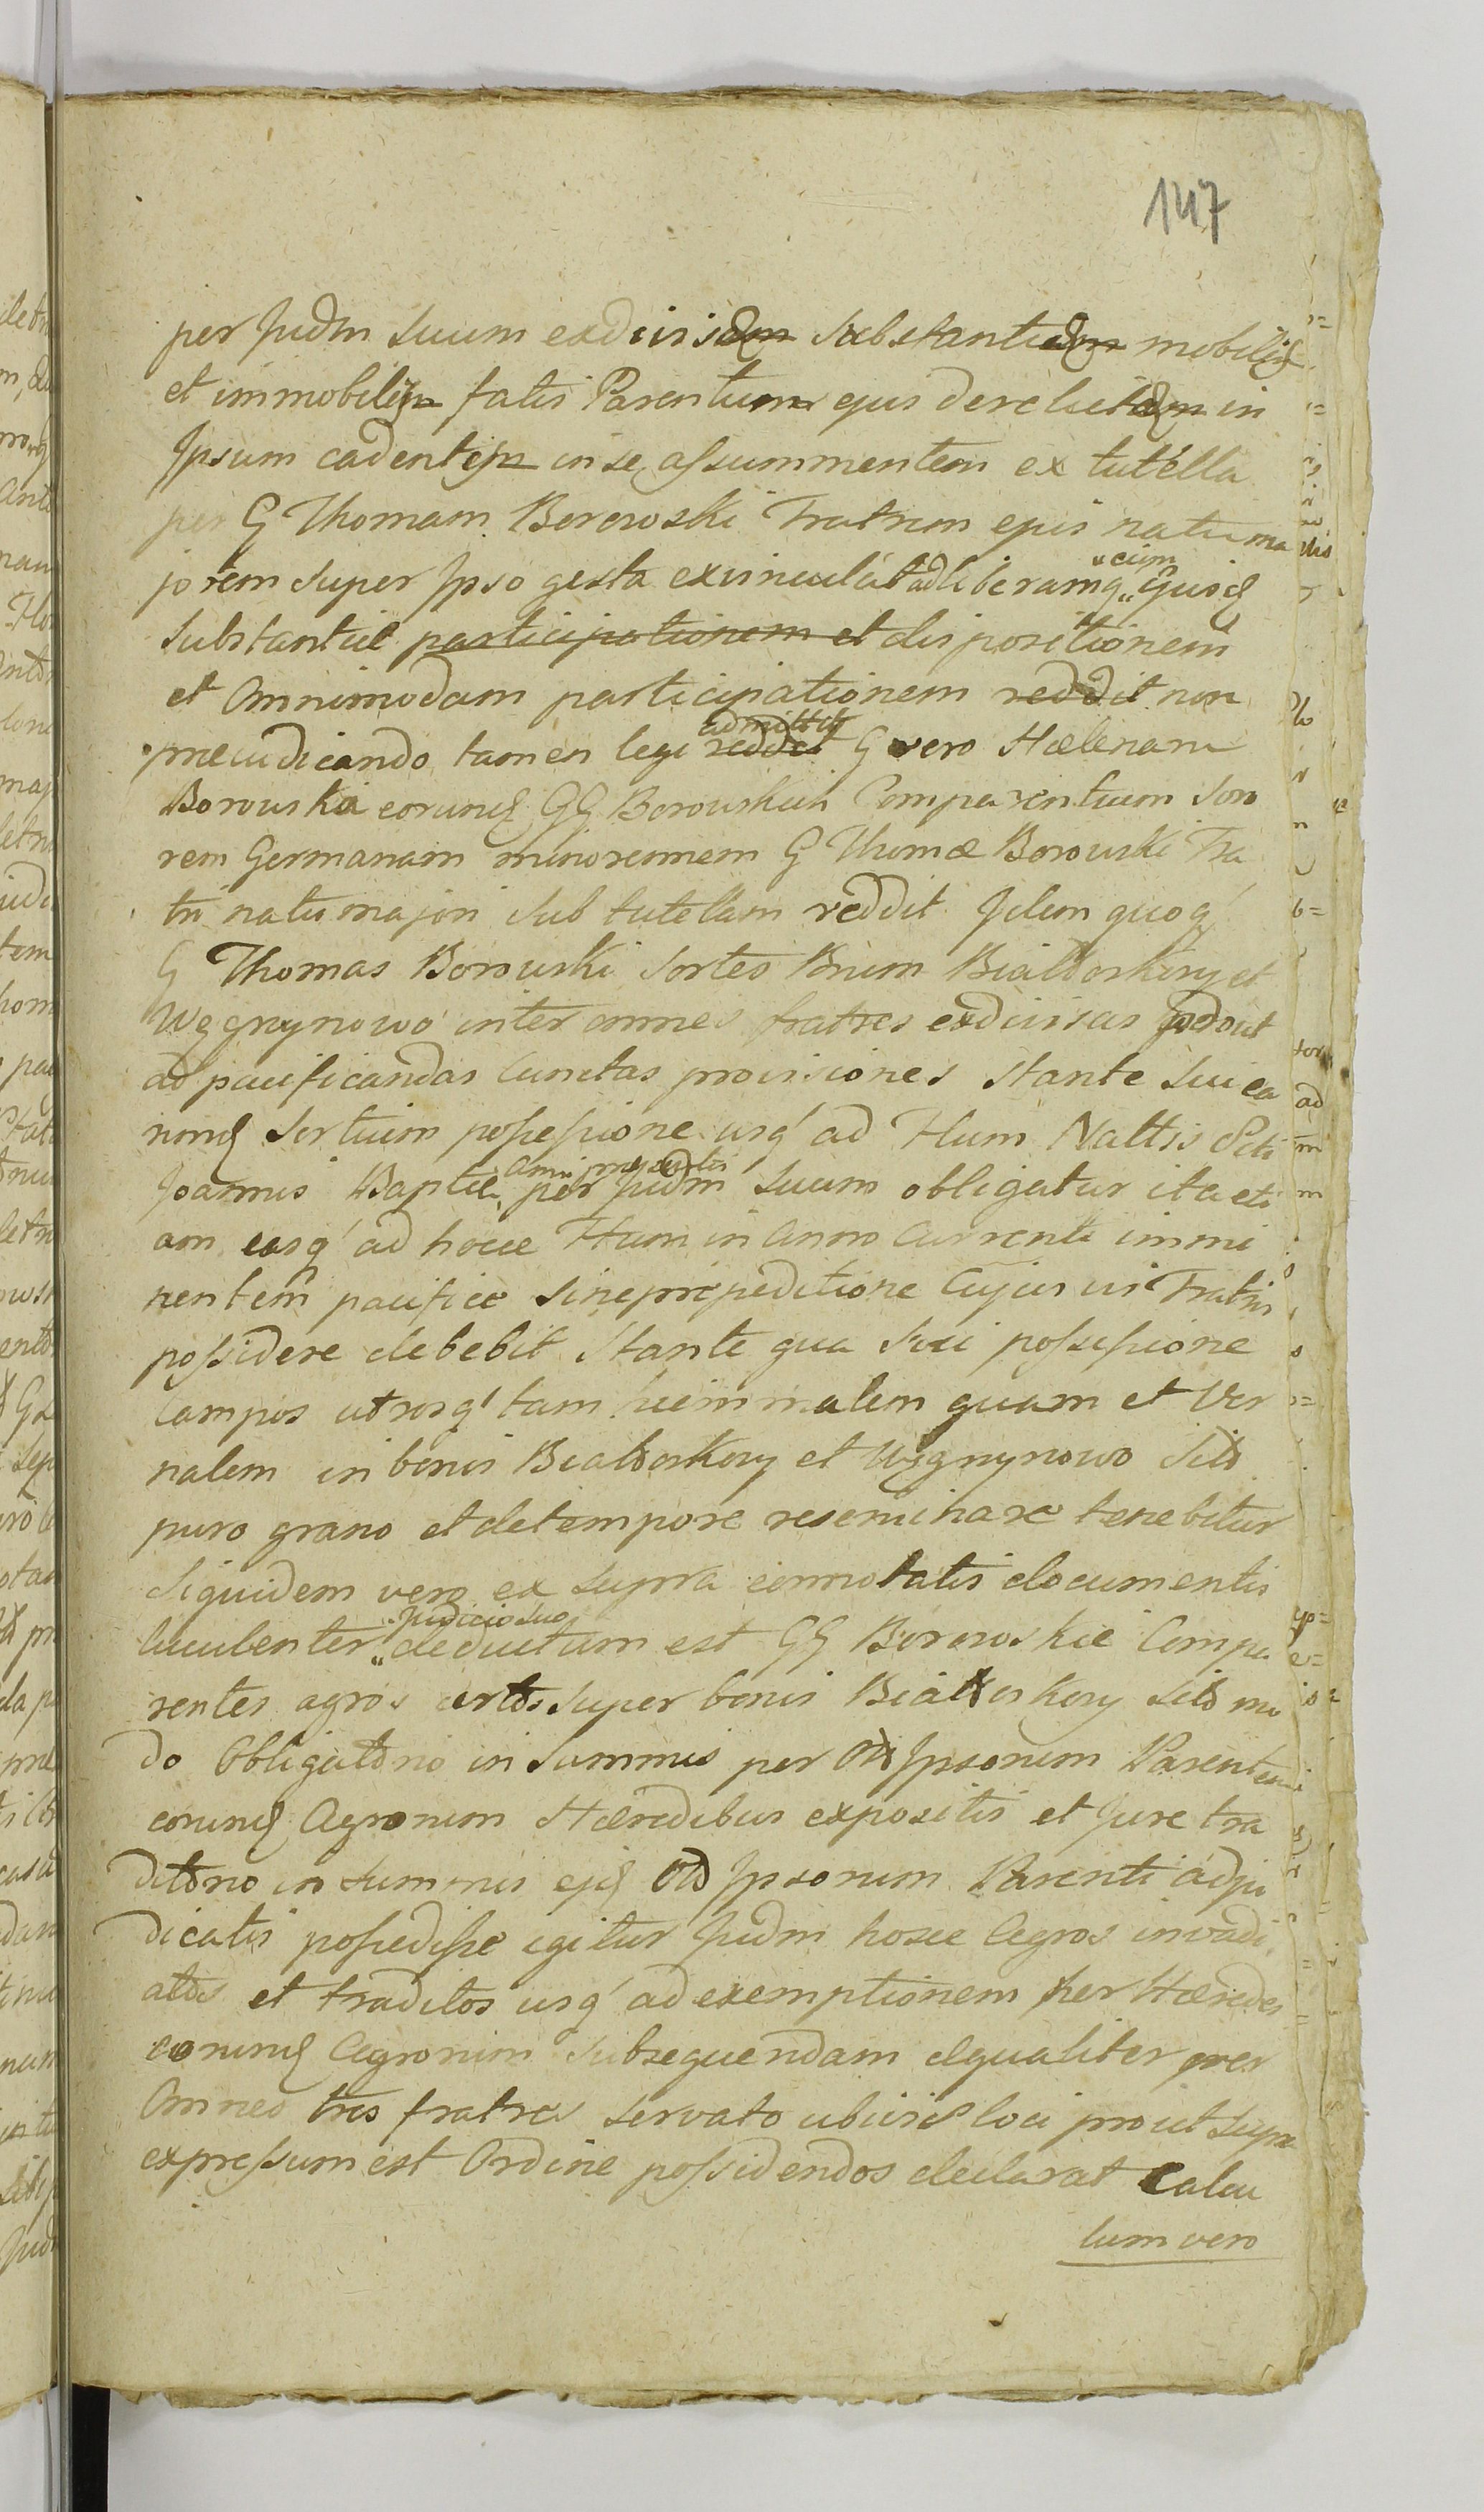 147
per Judm Suum exdivisam Substantiam mobilem
et immobilem fatis Parentum ejus derelictam in
Ipsum cadentem in se assummentem ex tutella
per G Thomam Borowski Fratrem ejus natu ma
jorem super Ipso gesta exvinculat ad liberamq
eum
Substantiæ participationem et dispositionem
et Omnimodam participationem reddit non
admittit
præiudicando tamen legi reddit G vero Hælenam
Borouska eorund GG Borouskich Comparentium Soro
rem Germanam minorennem G Thomæ Borouski Fra
tri natu majori sub tutellam reddit Idem quoq
G Thomas Borouski Sortes Bnrum Białoskory et
Węgrzynowo inter omnes fratres exdivisas prout
ad pacificandas Cunctas provisiones stante sui ea
rund Sortium possessione usq ad Flum Nattis Scti
ami præsentis
Joannis Baptæ per Judm Suum obligatur ita eti
am easq ad hocce Flum in Anno Currenti immi
nentem pacifice sine præpeditione Cujusvis Fratris
possidere debebit Stante qua sui possessione
Campos utrosq tam hiemmalem quam et Ver
nalem in bonis Białoskory et Węgrzynowo Sitis
puro grano et de tempore reseminare tenebitur
Siquidem vero ex supra connotatis documentis
Judicio Suo
luculenter deductum est GG Borowskie Compa
rentes agros certos super bonis Białoskory sitos mo
do Obligatorio in Summis per Ipsorum Parentem
eorund Agrorum Hæredibus expositis et Jure tra
ditorio in Summis ejd Ipsorum Parenti adju
dicatis possedisse igitur Judm hosce Agros invadi
atos et traditos usq ad exemptionem per Hæredes
eorund Agrorum subsequendam æqualiter per
Omnes tres fratres servato ubivis loci prout supra
expressum est Ordine possidendos declarat Calcu
lum vero